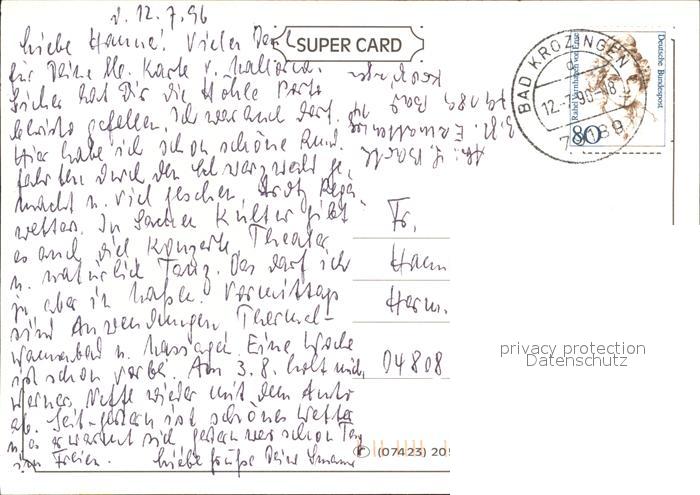 d. 12.7.96
Liebe Hanne! Vielen Dank
für Deine lb. Karte v. Mallorca.
Sicher hat Dir die Höhle Porto
Christo gefallen. Ich war auch dort.
Hier habe ich schon schöne Rund
fahrten durch den Schwarzwald ge,
macht u. viel gesehen, trotz Regen
wetter. In Sachen Kultur gibt
es auch viel Konzerte, Theater
u. natürlich Tanz. Das darf ich
ja aber in Maßen. Vormittags
sind Anwendungen, Thermal-
wannenbad u. Massagen. Eine Woche
ist schon vorbei. Am 3.8. holt mich
Werners Neffe wieder mit dem Auto
ab. Seit gestern ist schönes Wetter
u. es erwärmt sich, gestern war schon Tanz
im Freien. Liebe Grüße Deine
SUPER CARD
79189 Bad
BAD KROZINGEN
12.
79189
Deutsche Bundespost
80
Fr.
Hann
Herm.
04808
(07423) 20
privacy protection
Datenschutz